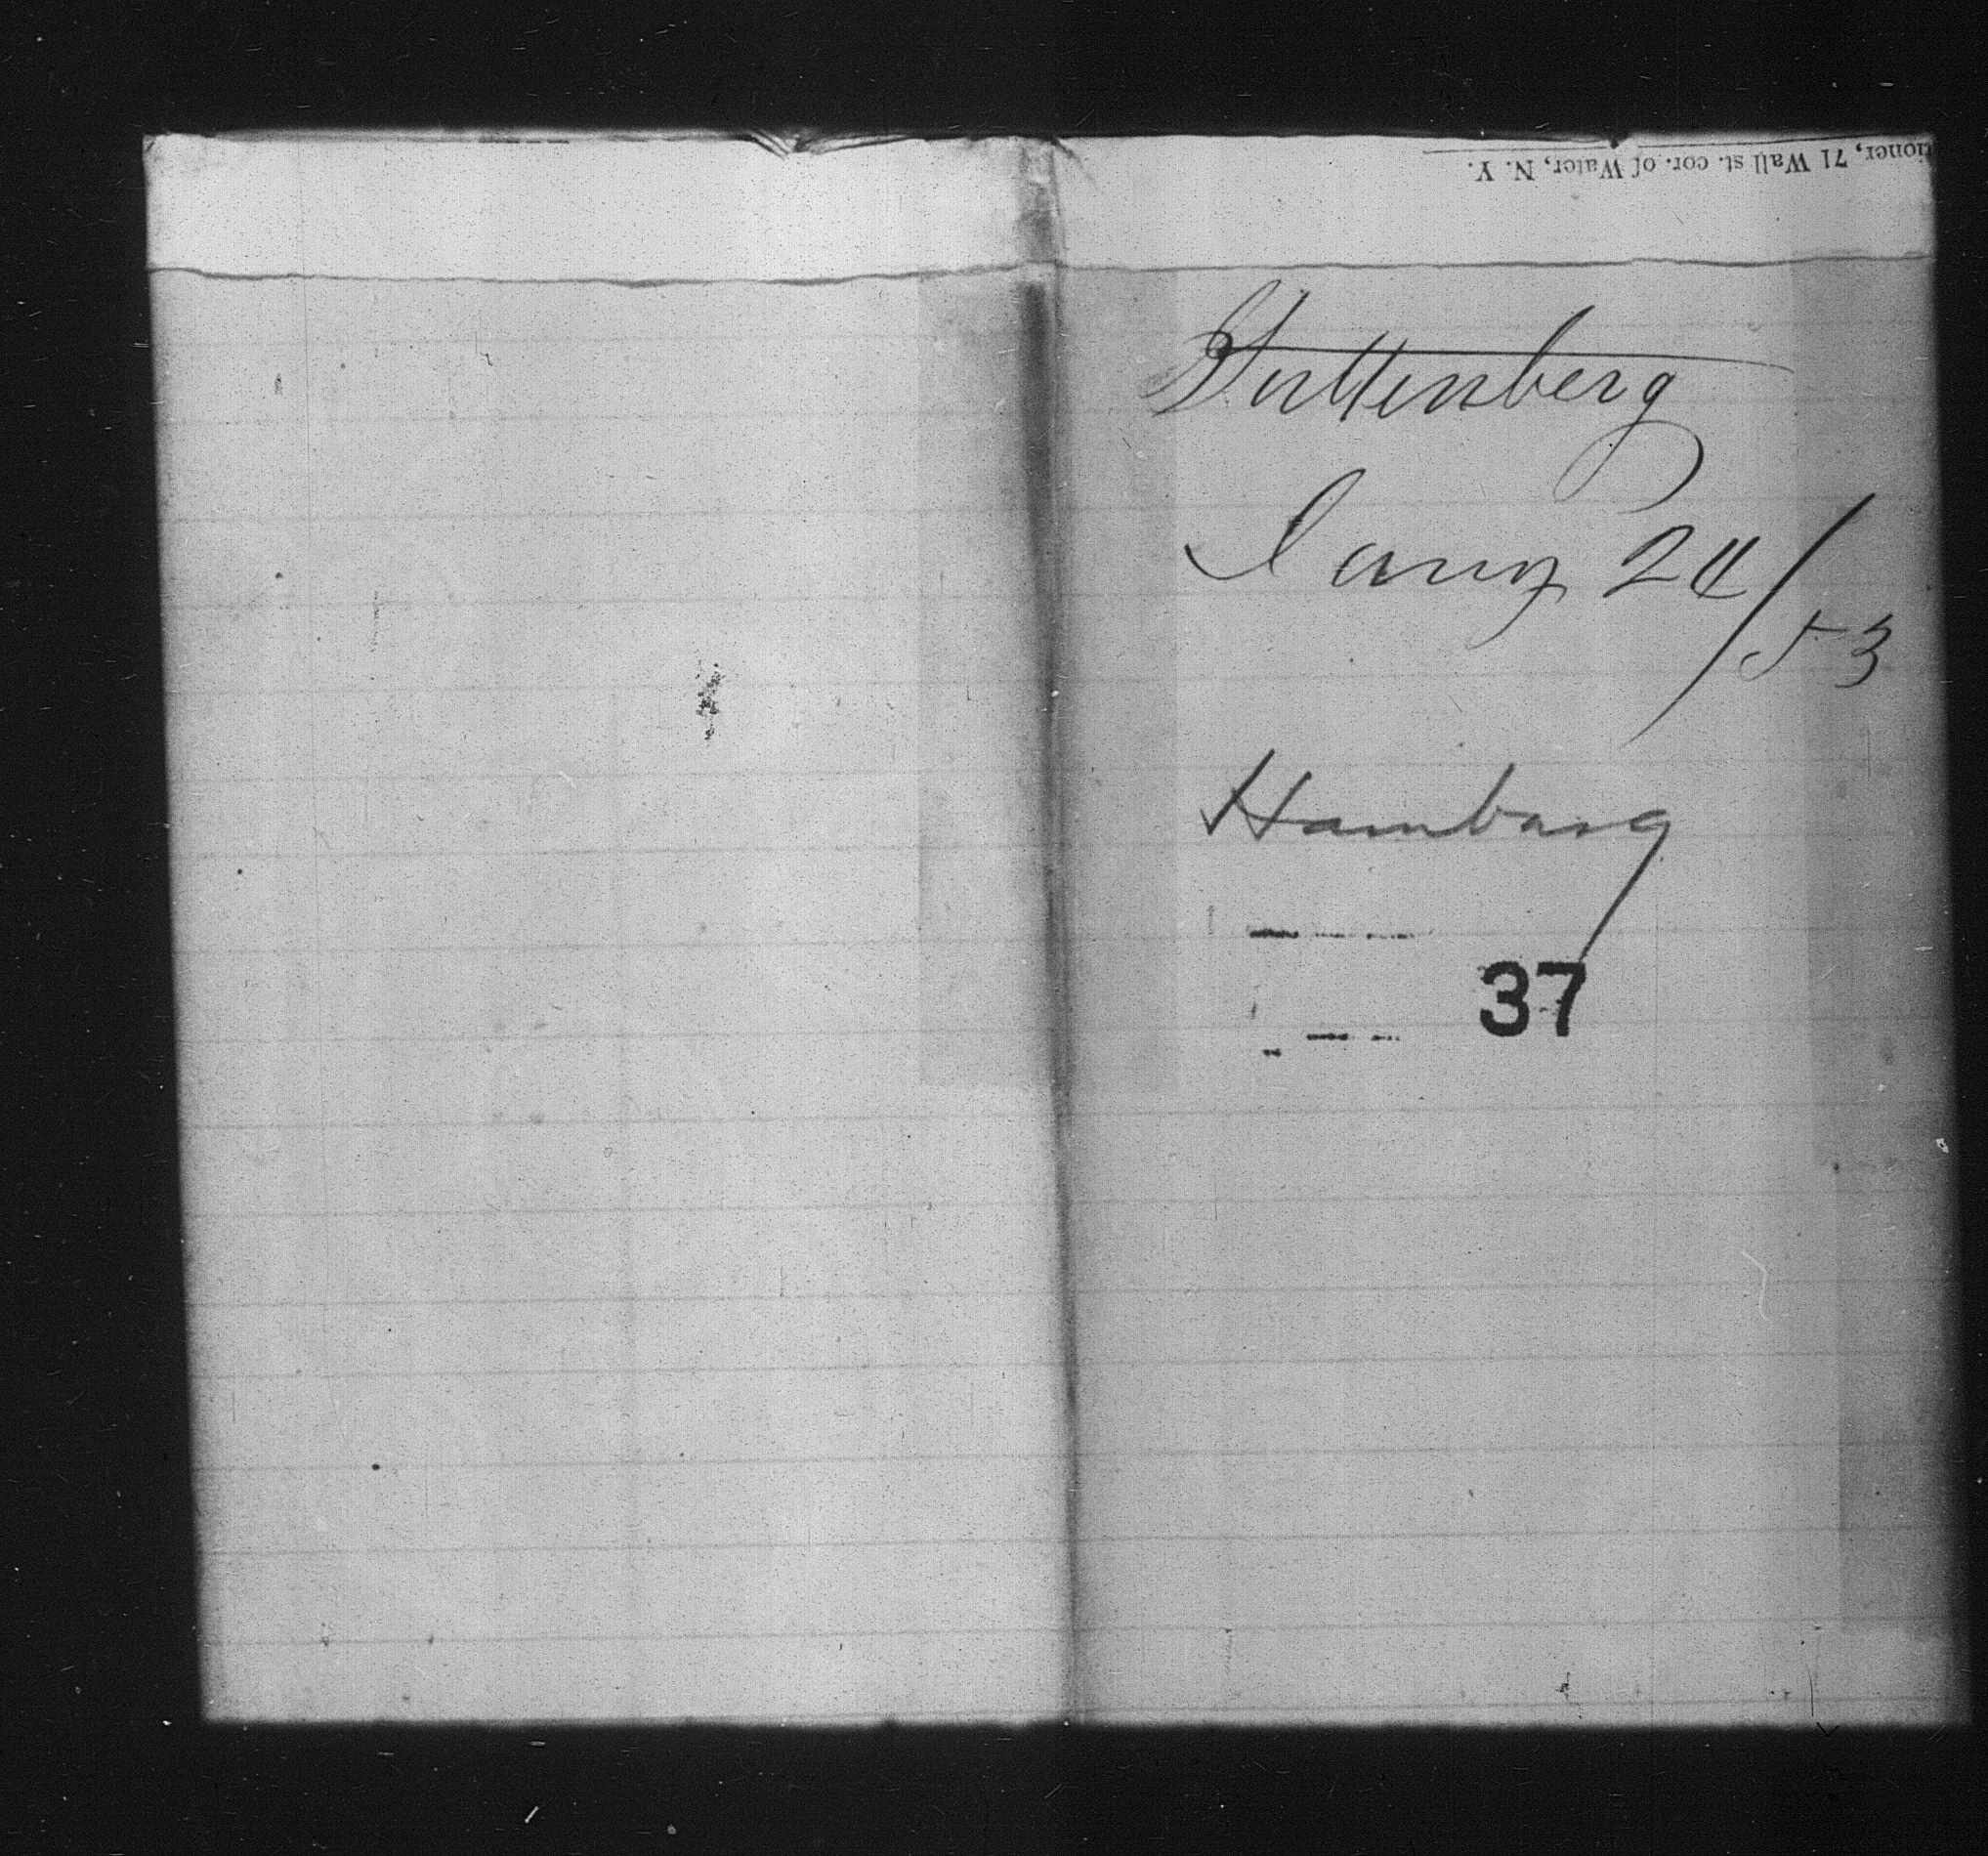 tioner, 71 Wall st. cor. of Water, N. Y.
Guttenberg
Jany 24/53
Hamburg
37